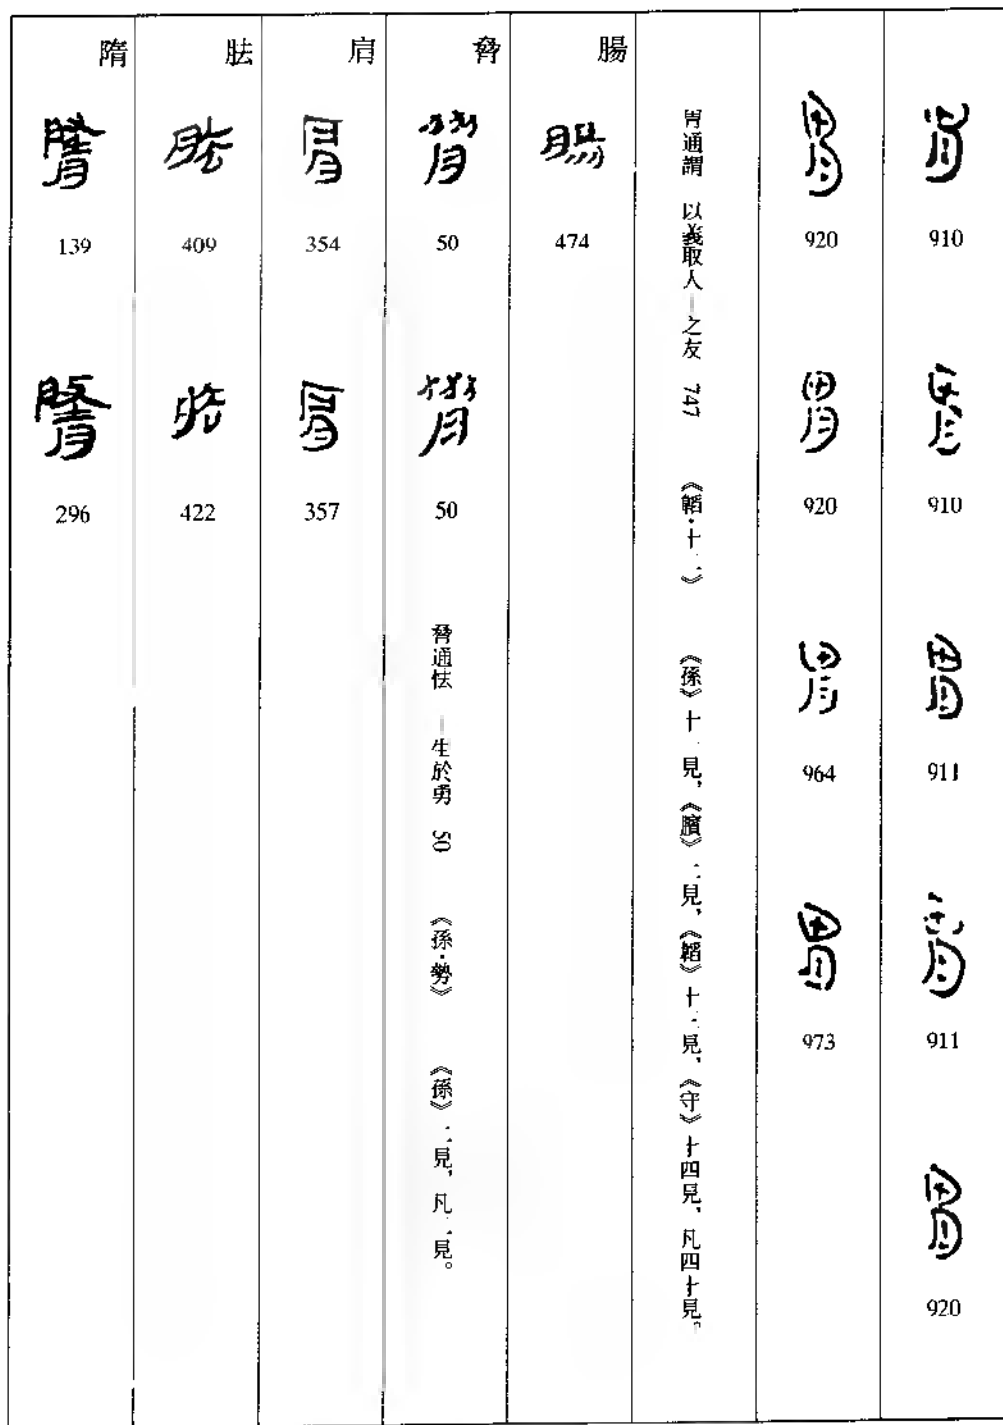 910
910
911
911
920
920
920
964
973
胃通謂 以義取人｜之友 747 《韜·十》 《孫》十見，《臏》二見，《韜》十見，《守》十四見，凡四十見。
腸
474
脅
50
50
脅通怯 ｜生於勇 50 《孫·勢》 《孫》二見，凡二見。
肩
354
357
胠
409
422
隋
139
296